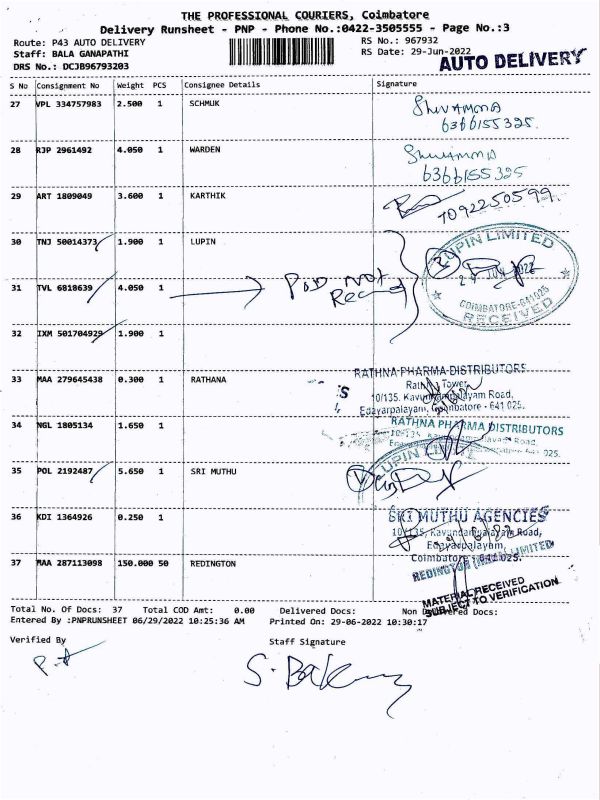 THE PROFESSIONAL COURIERS, Coimbatore
Delivery Runsheet - PNP - Phone No.:0422-3505555 - Page No.:3
Route: P43 AUTO DELIVERY
RS No.: 967932
Staff: BALA GANAPATHI
RS Date: 29-Jun-2022
AUTO DELIVERY
DRS No.: DCJB96793203
S No Consignment No Weight PCS Consignee Details Signature
27 VPL 334757983 2.500 1 SCHMUK
6366155325.
28 RJP 2961492 4.050 1 WARDEN
6366155325
29 ART 1809049 3.600 1 KARTHIK
7092250599.
30 TNJ 50014373 1.900 1 LUPIN
LUPIN LIMITED
COIMBATORE-641025
RECEIVED
31 TVL 6818639 4.050 1
POD Not
32 IXM 501704929 1.900 1
33 MAA 279645438 0.300 1 RATHANA
RATHNA PHARMA DISTRIBUTORS
Rathna Tower,
10/135. Kavundampalayam Road,
Edayarpalayam, Coimbatore - 641 025.
34 NGL 1805134 1.650 1
RATHNA PHARMA DISTRIBUTORS
35 POL 2192487 5.650 1 SRI MUTHU
LUPIN LIMITED
36 KDI 1364926 0.250 1
SRI MUTHU AGENCIES
10/135, Kavundampalayam Road,
Edayarpalayam,
Coimbatore - 641 025.
37 MAA 287113098 150.000 50 REDINGTON
REDINGTON INDIA LIMITED
MATERIAL RECEIVED
SUBJECT TO VERIFICATION
Total No. Of Docs: 37 Total COD Amt: 0.00 Delivered Docs: Non Delivered Docs:
Entered By :PNPRUNSHEET 06/29/2022 10:25:36 AM Printed On: 29-06-2022 10:30:17
Verified By
Staff Signature